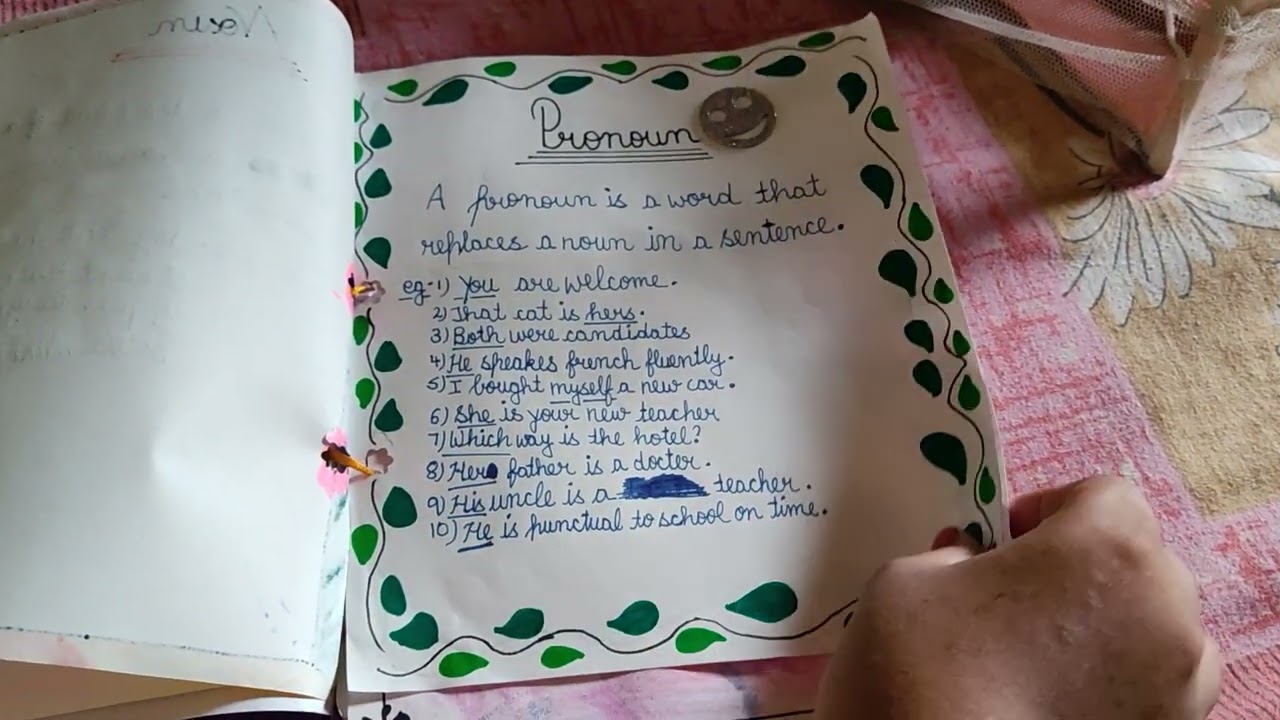 Pronoun
A pronoun is a word that
replaces a noun in a sentence.
eg-1) You are welcome.
2) That cat is hers.
3) Both were candidates
4) He speakes french fluently.
5) I bought myself a new car.
6) She is your new teacher
7) Which way is the hotel?
8) Her father is a docter.
9) His uncle is a teacher.
10) He is punctual to school on time.